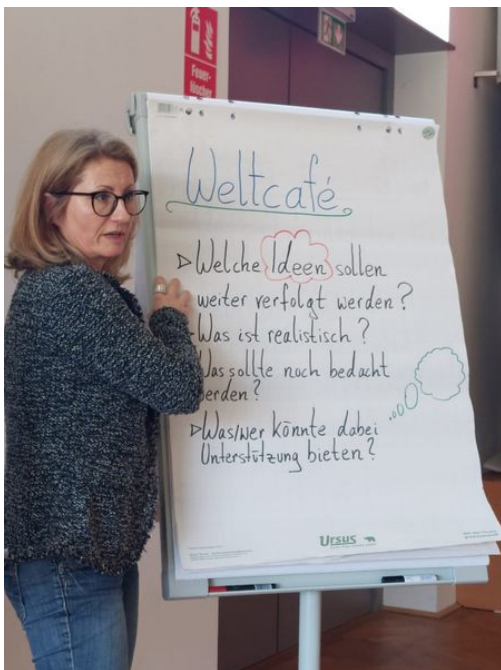 Feuer-
löscher
Weltcafé
▷Welche Ideen sollen
weiter verfolgt werden?
Was ist realistisch?
Was sollte noch bedacht
werden?
▷Was/wer könnte dabei
Unterstützung bieten?
Ursus